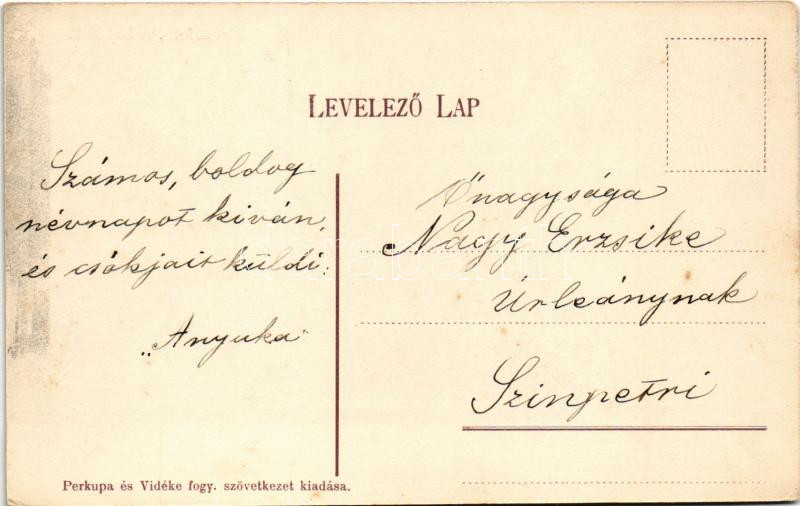 LEVELEZŐ LAP
Számos, boldog
névnapot kiván,
és csókjait küldi:
„Anyuka"
Őnagysága
Nagy Erzsike
Úrleánynak
Szinpetri
Perkupa és Vidéke fogy. szövetkezet kiadása.